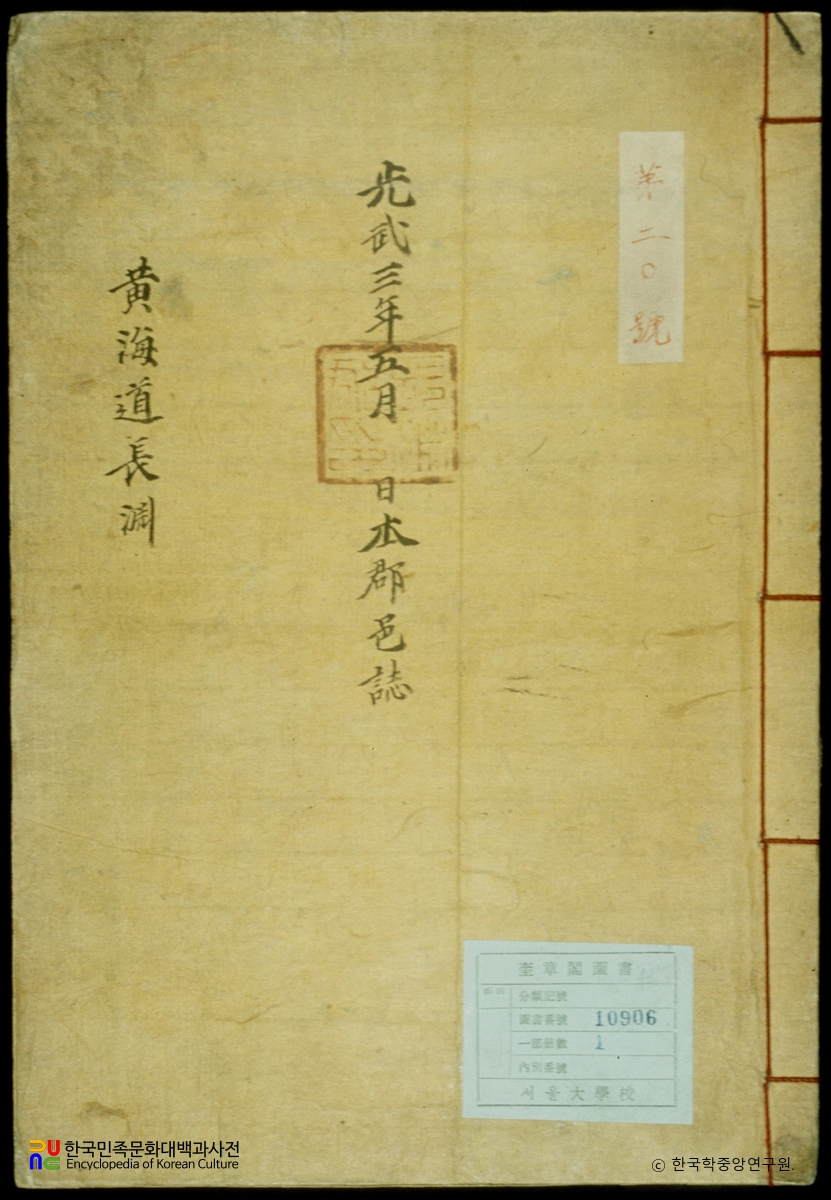 第二〇號
光武三年五月 日本郡邑誌
黃海道長淵
奎章閣圖書
分類記號
圖書番號 10906
一部冊數 1
內別番號
서울大學校
한국민족문화대백과사전
Encyclopedia of Korean Culture
© 한국학중앙연구원.